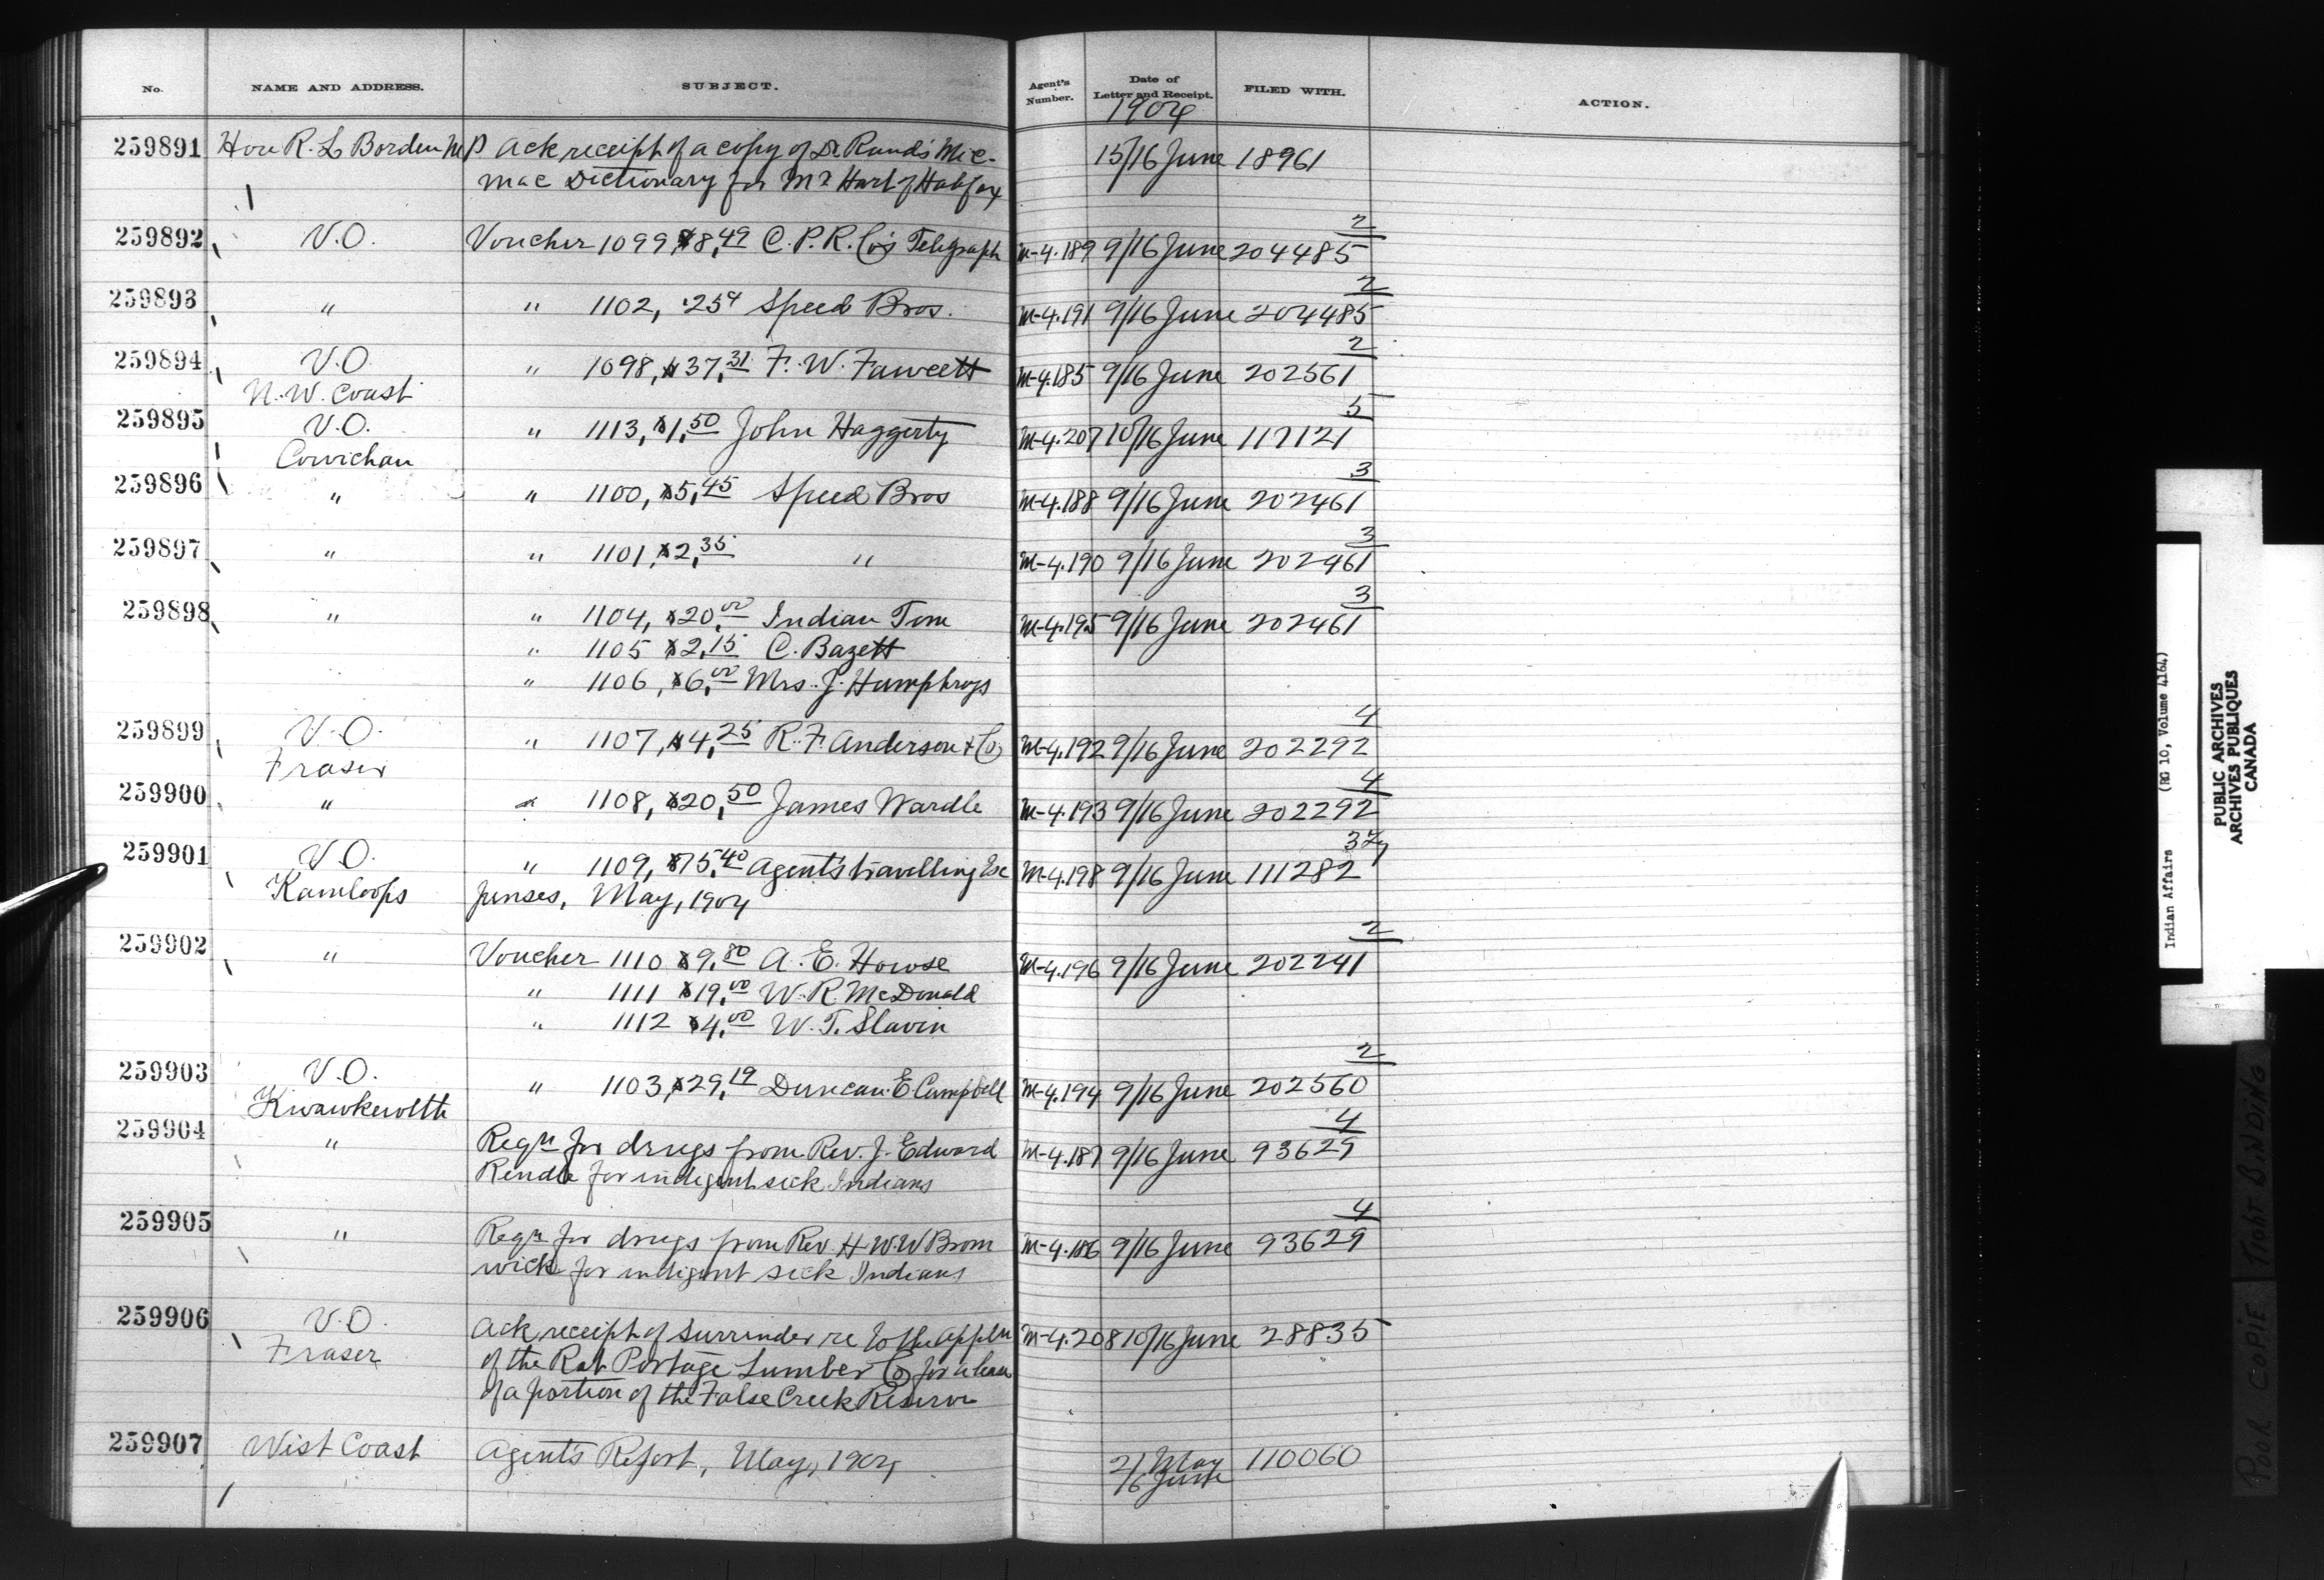 No. NAME AND ADDRESS. SUBJECT. Agent's Number. Date of Letter and Receipt. FILED WITH. ACTION.
1904
259891 Hon R. L Borden MP Ack receipt of a copy of Dr Rand's Mic- 15/16 June 18961
mac Dictionary for Mr Hart of Halifax
259892 V.O. Voucher 1099 $8,49 C. P. R. Co's Telegraph M-4.189 9/16 June 204485 2
259893 " " 1102, .25¢ Speed Bros. M-4.191 9/16 June 204485 2
259894 V.O. " 1098, $37,31 F. W. Fawcett M-4.185 9/16 June 202561 2
N. W. Coast
259895 V.O. " 1113, $1,50 John Haggerty M-4.207 10/16 June 117121 5
Cowichan
259896 " " 1100, $5,45 Speed Bros M-4.188 9/16 June 202461 3
259897 " " 1101, $2,35 " M-4.190 9/16 June 202461 3
259898 " " 1104, $20,00 Indian Tom M-4.195 9/16 June 202461 3
" 1105 $2,15 C. Bazett
" 1106, $6,00 Mrs. J. Humphreys
259899 V.O. " 1107, $4,25 R. F. Anderson & Co M-4.192 9/16 June 202292 4
Fraser
259900 " " 1108, $20,50 James Wardle M-4.193 9/16 June 202292 4
259901 V.O. " 1109, $75,40 Agent's travelling Ex M-4.198 9/16 June 111282
Kamloops penses, May, 1904
259902 " Voucher 1110 $9,80 A. E. Howse M-4.196 9/16 June 202241 2
" 1111 $19,00 W. R. McDonald
" 1112 $4,00 W. T. Slavin
259903 V.O. " 1103, $29,19 Duncan E Campbell M-4.194 9/16 June 202560 2
Kwawkewlth
259904 " Reqn for drugs from Rev. J. Edward M-4.187 9/16 June 93629 4
Rendle for indigent sick Indians
259905 " Reqn for drugs from Rev H W. W Brom M-4.186 9/16 June 93629 4
wick for indigent sick Indians
259906 V.O. Ack receipt of surrender re to the appln M-4.208 10/16 June 28835
Fraser of the Rat Portage Lumber Co for a lease
of a portion of the False Creek Reserve
259907 West Coast Agent's Report, May, 1904 21 May 110060
16 June
Indian Affairs (RG 10, Volume 4164)
PUBLIC ARCHIVES
ARCHIVES PUBLIQUES
CANADA
POOR COPIE TIGHT BINDING